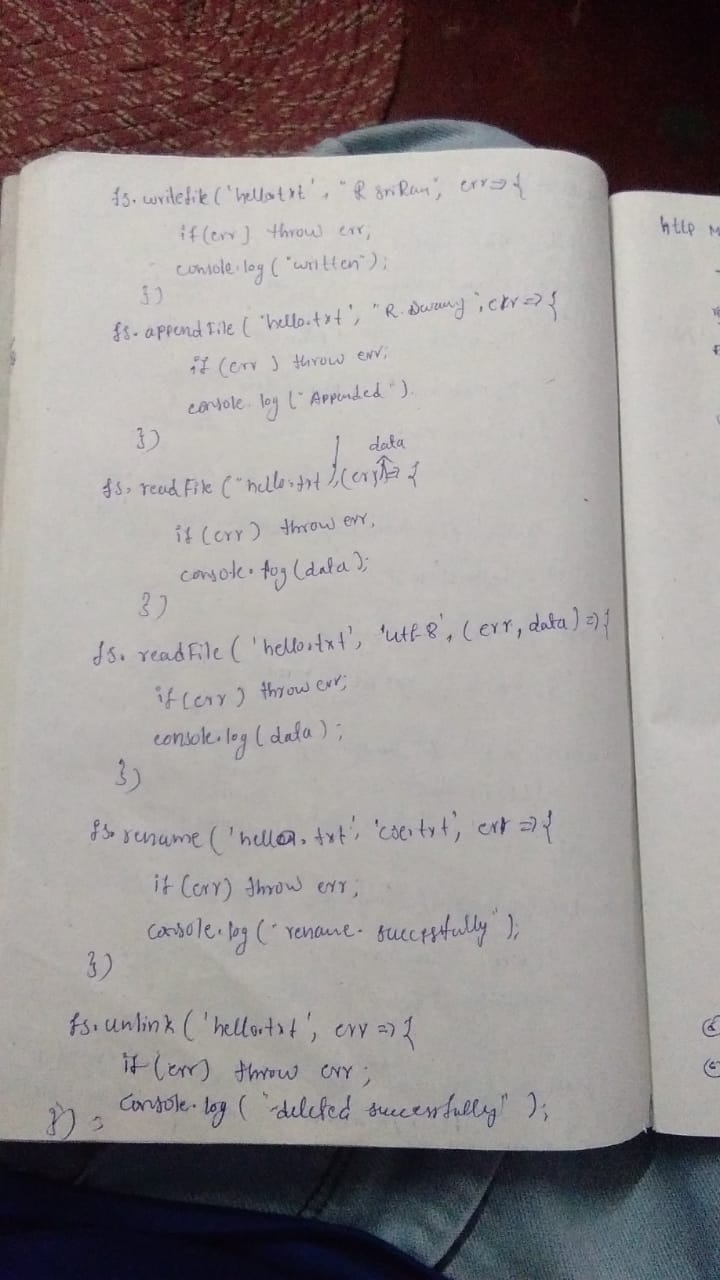 fs.writefile('hello.txt', "R SriRam", err=>{
if(err) throw err;
console.log("written");
})
fs.appendFile('hello.txt', "R. Swamy", err=>{
if (err) throw err;
console.log("Appended").
})
data
fs.readFile("hello.txt", (err)=>{
if (err) throw err,
console.log(data);
})
fs.readFile('hello.txt', 'utf-8', (err, data)=>{
if(err) throw err;
console.log(data);
})
fs.rename('hello.txt', 'cse.txt', err =>{
if (err) throw err;
console.log("rename successfully");
})
fs.unlink('hello.txt', err =>{
if (err) throw err;
console.log("deleted successfully");
})
http